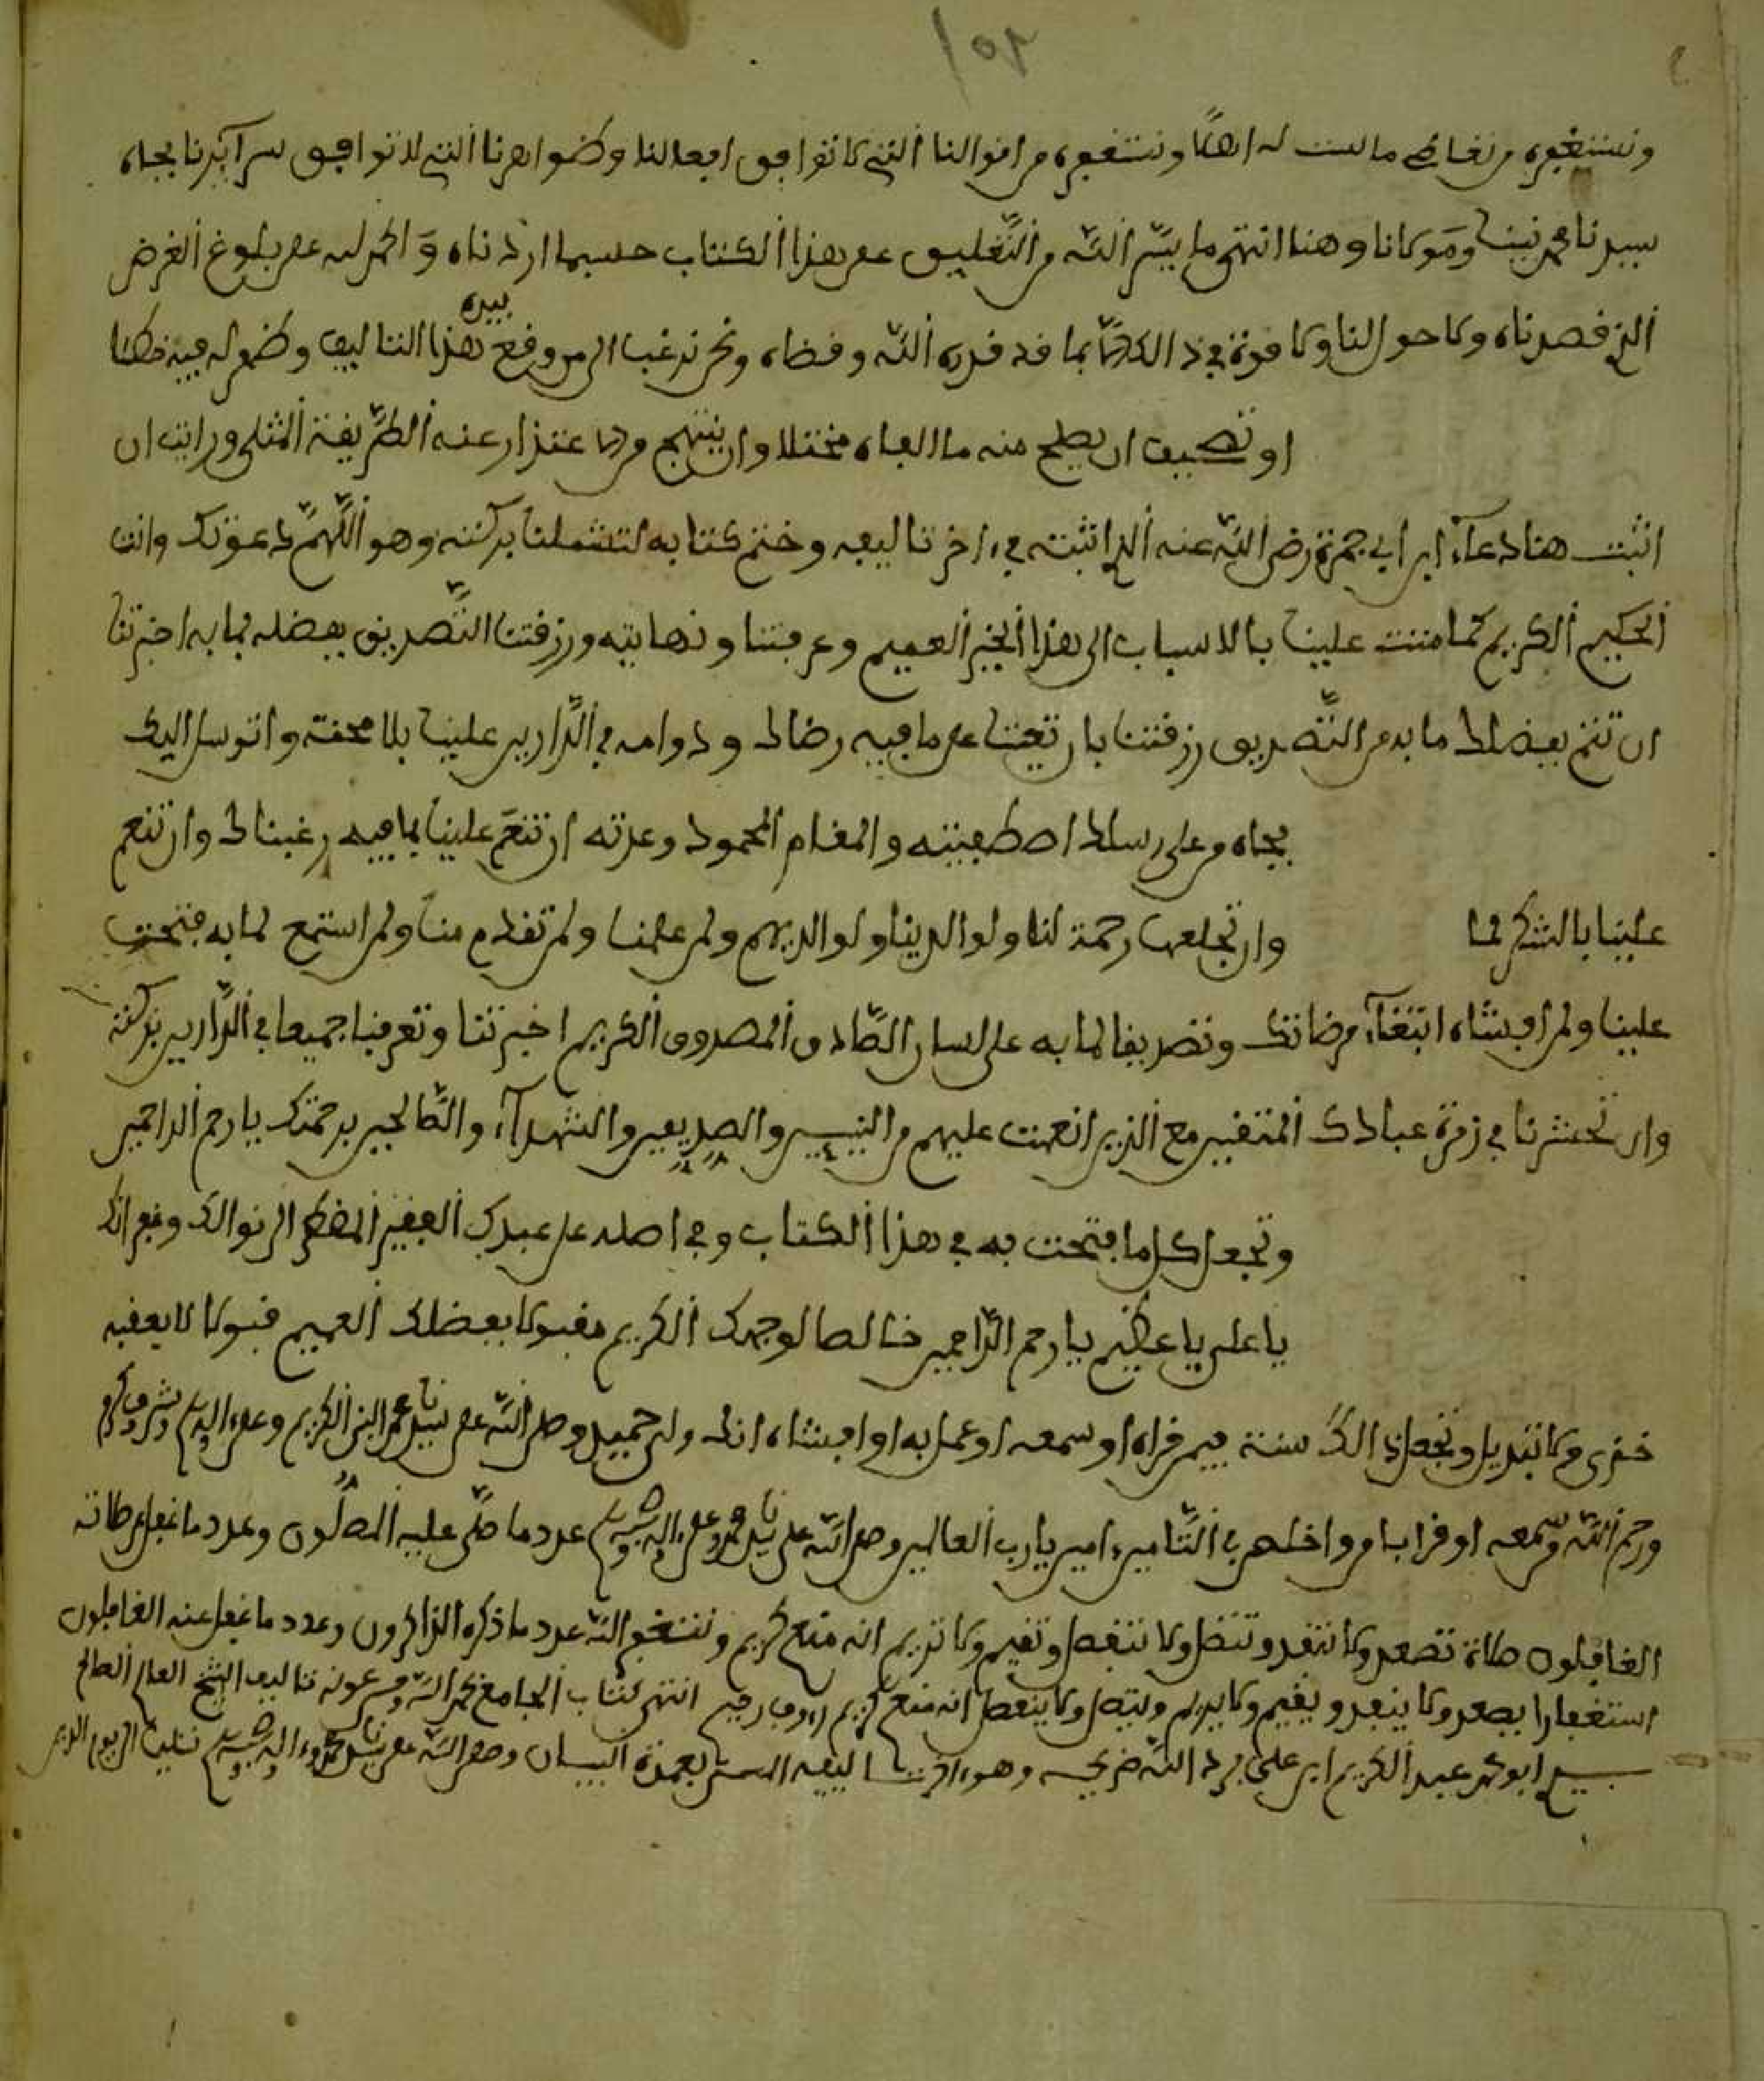 ١٥٢
ونستغفره من تعاطي ما لست له اهلا ونستغفره من اقوالنا التي لا توافق افعالنا وظواهرنا التي لا توافق سرآئرنا بجاه
سيدنا محمد نبينا ومولانا وهنا انتهى ما يسّر الله من التّعليق على هذا الكتاب حسبما اردناه والحمد لله على بلوغ الغرض
الذي قصدناه ولا حول لنا ولا قوة في ذالك الا بما قد قدره الله وقضاه ونحن نرغب الى من وقع بيده هذا التاليف وظهر له فيه خطئا
او تصحيف ان يصلح منه ما الفاه مختلا وان ينتهج من الاعتذار عنه الطّريقة المثلى ورايت ان
اثبت هنا دعآء ابن ابي جمرة رضي الله عنه الذي اثبته في ءاخر تاليفه وختم كتابه لتشملنا بركته وهو اللّهمّ دعوتك وانت
الحكيم الكريم كما مننت علينا بالاسباب الى هذا الخير العميم وعرفتنا ونهايته ورزقتنا التّصديق بفضله بما به اخبرتنا
ان تتم بفضلك ما به من التّصديق رزقتنا بان تعيننا على ما فيه رضاك ودوامه في الدّارين علينا بلا محنة واتوسل اليك
بجاه من على رسلك اصطفيته والمقام المحمود وعدته ان تنعم علينا بما فيه رغبناك وان تنعم
علينا بالشكر لها وان تجعلها رحمة لنا ولوالدينا ولوالديهم ولمن علمنا ولمن تقدم منا ولمن استمع لما به فتحت
علينا ولمن افشاه ابتغآء مرضاتك وتصديقا لما به على لسان الصّادق المصدوق الكريم اخبرتنا وتعرفنا جميعا في الدّارين بركته
وان تحشرنا في زمرة عبادك المتقين مع الذين انعمت عليهم من النبيين والصديقين والشهدآء والصّالحين برحمتك يا ارحم الراحمين
وتجعل كل ما فتحت به في هذا الكتاب وفي اصله على عبدك الفقير المضطر الى نوالك وغفرانك
يا علي يا عظيم يا ارحم الرّاحمين خالصا لوجهك الكريم مقبولا بفضلك العميم قبولا لا يعقبه
خزي ولا تبديل وتجعل ذالك سنة فيمن قراه او سمعه او عمل به او افشاه انك ولي حميد وصلى الله على سيدنا محمد النبي الكريم وعلى ءاله وسلم وشرف وكرم
ورحم الله من سمعه او قرا بامر واخلص في التّامين ءامين يا رب العالمين وصلى الله على سيدنا محمد وعلى ءاله وصحبه وسلم عدد ما صلّى عليه المصلّون وعدد ما غفل عن صلاته
الغافلون صلاة تصعد ولا تنفد وتتصل ولا تنفصل وتقيم ولا تريم انه منعم كريم ونستغفر الله عدد ما ذكره الذاكرون وعدد ما غفل عنه الغافلون
استغفارا يصعد ولا ينفد ويقيم ولا يريم ويتصل ولا ينفصل انه منعم كريم رءوف رحيم انتهى كتاب الجامع بحمد الله وحسن عونه تاليف الشيخ العالم الصالح
سيدي ابو محمد عبد الكريم ابن علي برد الله ضريحه وهو ءاخر تاليفه المسمى بعمدة البيان وصلى الله على سيدنا محمد وءاله وصحبه وسلم تسليما الى يوم الدين